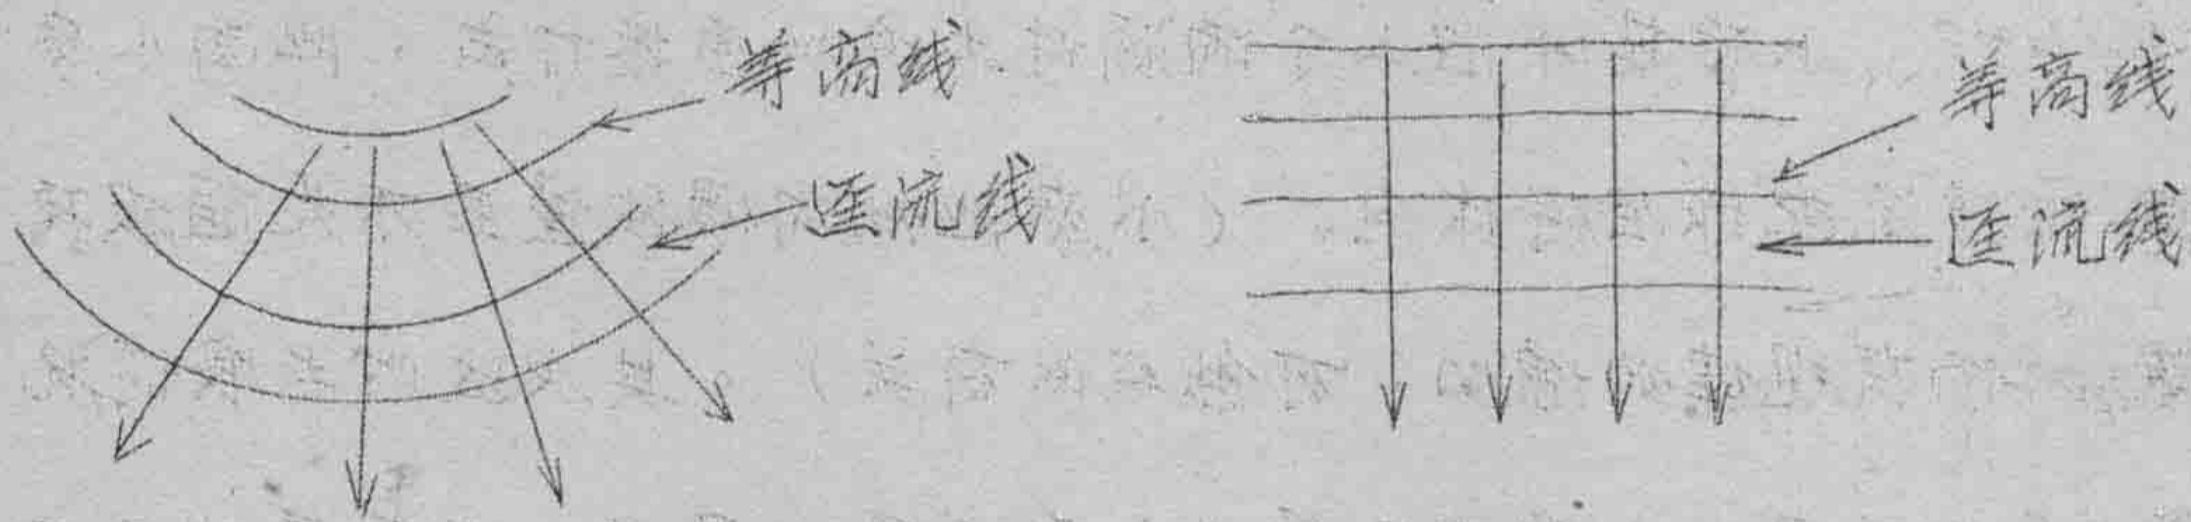 等高线
迳流线
等高线
迳流线